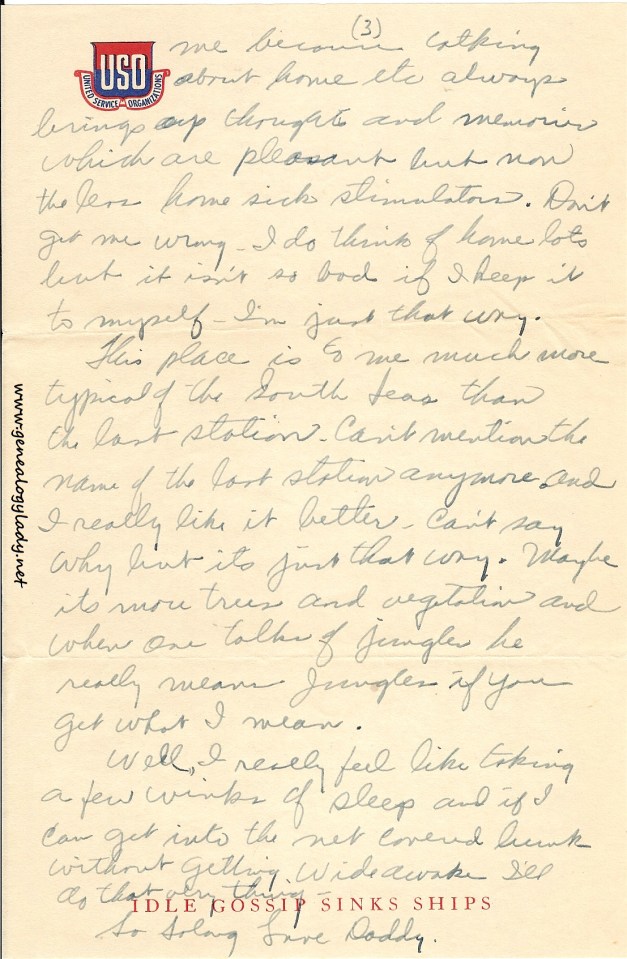 (3)
USO
UNITED SERVICE ORGANIZATIONS
me because talking
about home etc always
brings up thoughts and memories
which are pleasant but non
the less home sick stimulators. Don't
get me wrong - I do think of home lots
but it isn't so bad if I keep it
to myself - I'm just that way.
This place is to me much more
typical of the South Seas than
the last station. Can't mention the
name of the last station anymore and
I really like it better - Can't say
why but its just that way. Maybe
its more trees and vegetation and
when one talks of jungles he
really means Jungles if you
get what I mean.
Well, I really feel like taking
a few winks of sleep and if I
can get into the net covered bunk
without getting wide awake I'll
do that very thing -
IDLE GOSSIP SINKS SHIPS
So Solong Love Daddy.
www.genealogylady.net